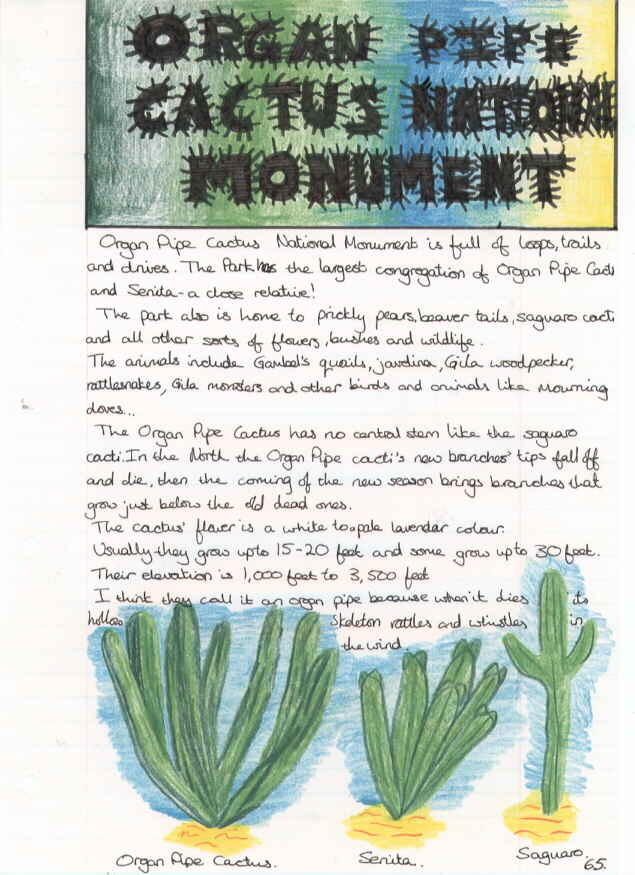 ORGAN PIPE
CACTUS NATIONAL
MONUMENT
Organ Pipe Cactus National Monument is full of loops, trails
and drives. The Park has the largest congregation of Organ Pipe Cacti
and Senita - a close relative!
The park also is home to prickly pears, beaver tails, saguaro cacti
and all other sorts of flowers, bushes and wildlife.
The animals include Gambel's quails, javelina, Gila woodpecker,
rattlesnakes, Gila monsters and other birds and animals like mourning
doves...
The Organ Pipe Cactus has no central stem like the saguaro
cacti. In the North the Organ Pipe cacti's new branches' tips fall off
and die, then the coming of the new season brings branches that
grow just below the old dead ones.
The cactus' flower is a white to pale lavendar colour.
Usually they grow upto 15-20 feet and some grow upto 30 feet.
Their elevation is 1,000 feet to 3,500 feet
I think they call it an organ pipe because when it dies its
hollow skeleton rattles and whistles in
the wind.
Organ Pipe Cactus. Senita. Saguaro.
65.